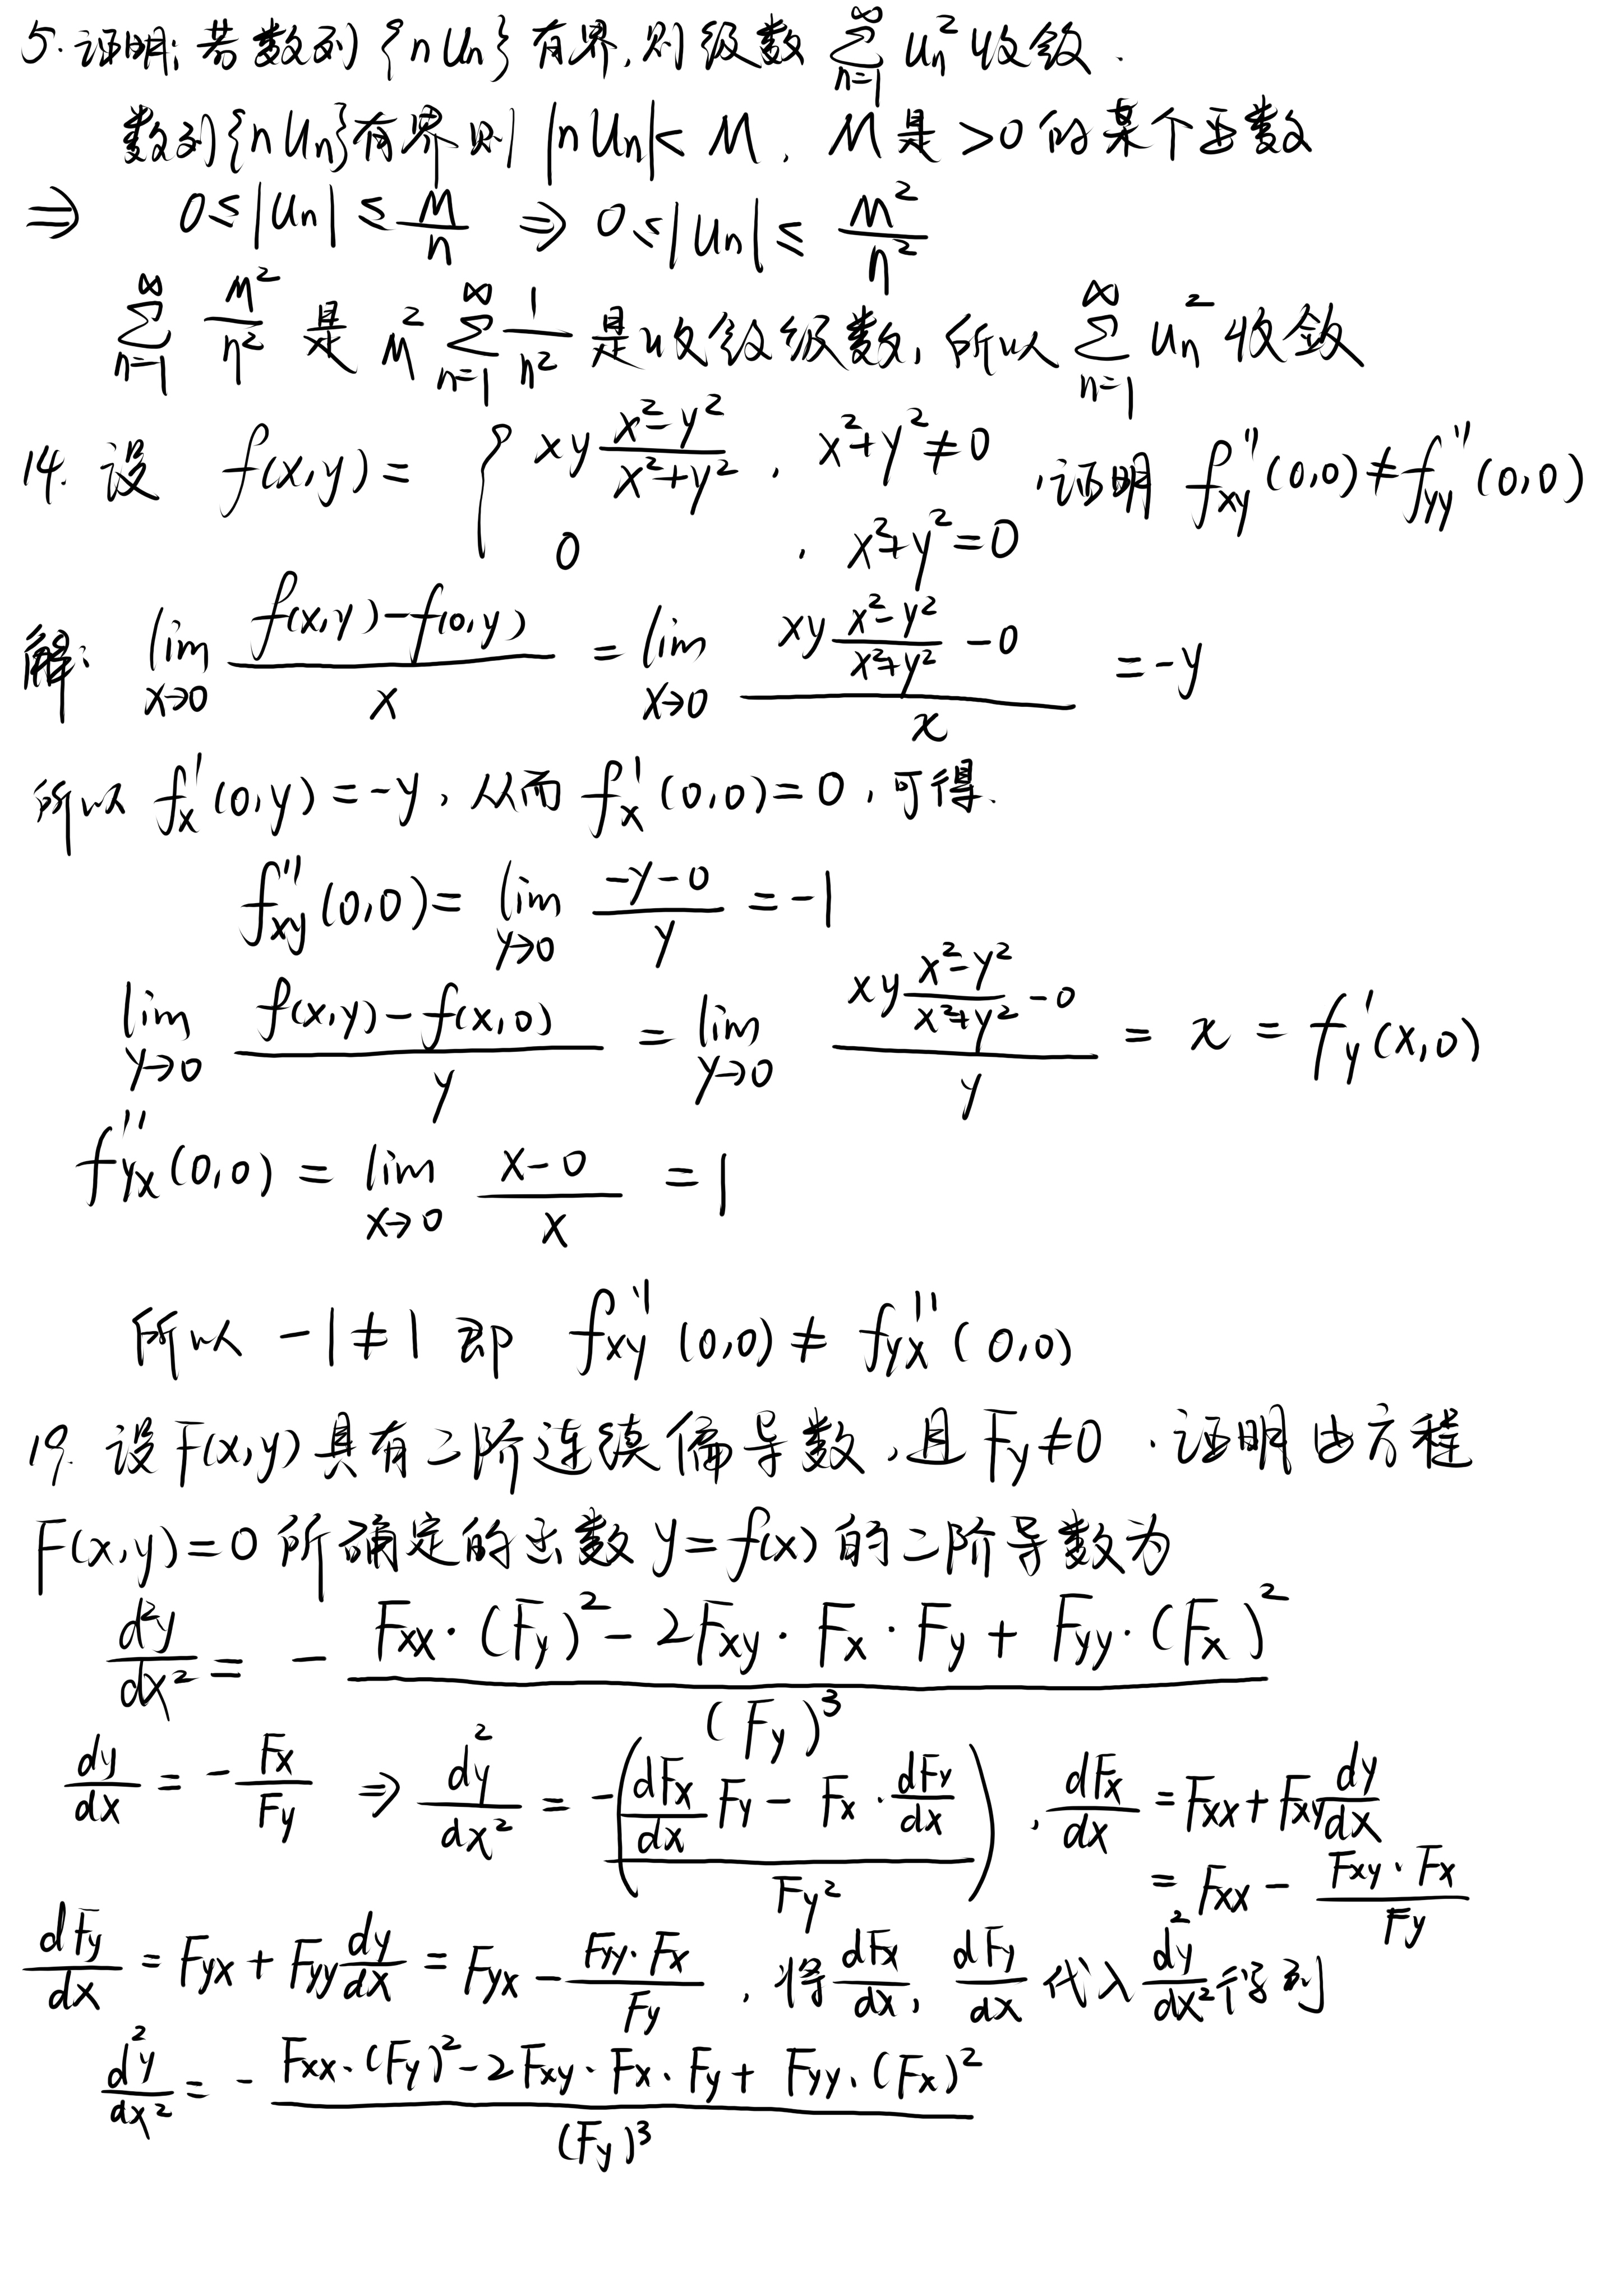 5. 证明: 若数列 {n Un} 有界, 则级数 ∑_{n=1}^{∞} Un² 收敛.
数列{n Un}有界则 |n Un| < M, M 是 >0 的某个正数
⇒ 0 ≤ |Un| ≤ M/n ⇒ 0 ≤ |Un| ≤ M²/n²
∑_{n=1}^{∞} M²/n² 是 M² ∑_{n=1}^{∞} 1/n² 是收敛级数, 所以 ∑_{n=1}^{∞} Un² 收敛
14. 设 f(x,y) = { xy (x²-y²)/(x²+y²), x²+y² ≠ 0
0, x²+y² = 0 , 证明 f''xy(0,0) ≠ f''yy(0,0)
解: lim_{x→0} (f(x,y)-f(0,y))/x = lim_{x→0} (xy (x²-y²)/(x²+y²) - 0)/x = -y
所以 f'x(0,y) = -y, 从而 f'x(0,0) = 0, 可得.
f''xy(0,0) = lim_{y→0} (-y-0)/y = -1
lim_{y→0} (f(x,y)-f(x,0))/y = lim_{y→0} (xy (x²-y²)/(x²+y²) - 0)/y = x = f'y(x,0)
f''yx(0,0) = lim_{x→0} (x-0)/x = 1
所以 -1 ≠ 1 即 f''xy(0,0) ≠ f''yx(0,0)
19. 设 F(x,y) 具有二阶连续偏导数, 且 Fy ≠ 0. 证明由方程
F(x,y) = 0 所确定的函数 y = f(x) 的二阶导数为
d²y/dx² = - (Fxx·(Fy)² - 2Fxy·Fx·Fy + Fyy·(Fx)²)/(Fy)³
dy/dx = - Fx/Fy ⇒ d²y/dx² = -((dFx/dx Fy - Fx·dFy/dx)/Fy²), dFx/dx = Fxx + Fxy dy/dx
= Fxx - Fxy·Fx/Fy
dFy/dx = Fyx + Fyy dy/dx = Fyx - Fyy·Fx/Fy, 将 dFx/dx, dFy/dx 代入 d²y/dx² 得到
d²y/dx² = - (Fxx·(Fy)² - 2Fxy·Fx·Fy + Fyy·(Fx)²)/(Fy)³